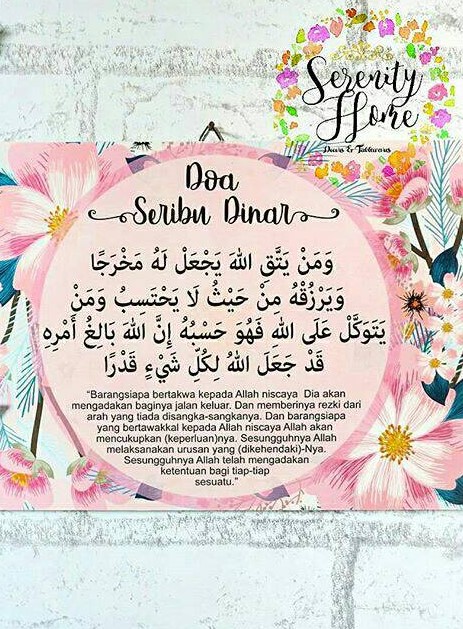 Serenity
Home
Doa
Seribu Dinar
وَمَنْ يَتَّقِ اللهَ يَجْعَلْ لَهُ مَخْرَجًا
وَيَرْزُقْهُ مِنْ حَيْثُ لَا يَحْتَسِبُ وَمَنْ
يَتَوَكَّلْ عَلَى اللهِ فَهُوَ حَسْبُهُ إِنَّ اللهَ بَالِغُ أَمْرِهِ
قَدْ جَعَلَ اللهُ لِكُلِّ شَيْءٍ قَدْرًا
“Barangsiapa bertakwa kepada Allah niscaya Dia akan
mengadakan baginya jalan keluar. Dan memberinya rezki dari
arah yang tiada disangka-sangkanya. Dan barangsiapa
yang bertawakkal kepada Allah niscaya Allah akan
mencukupkan (keperluan)nya. Sesungguhnya Allah
melaksanakan urusan yang (dikehendaki)-Nya.
Sesungguhnya Allah telah mengadakan
ketentuan bagi tiap-tiap
sesuatu.”